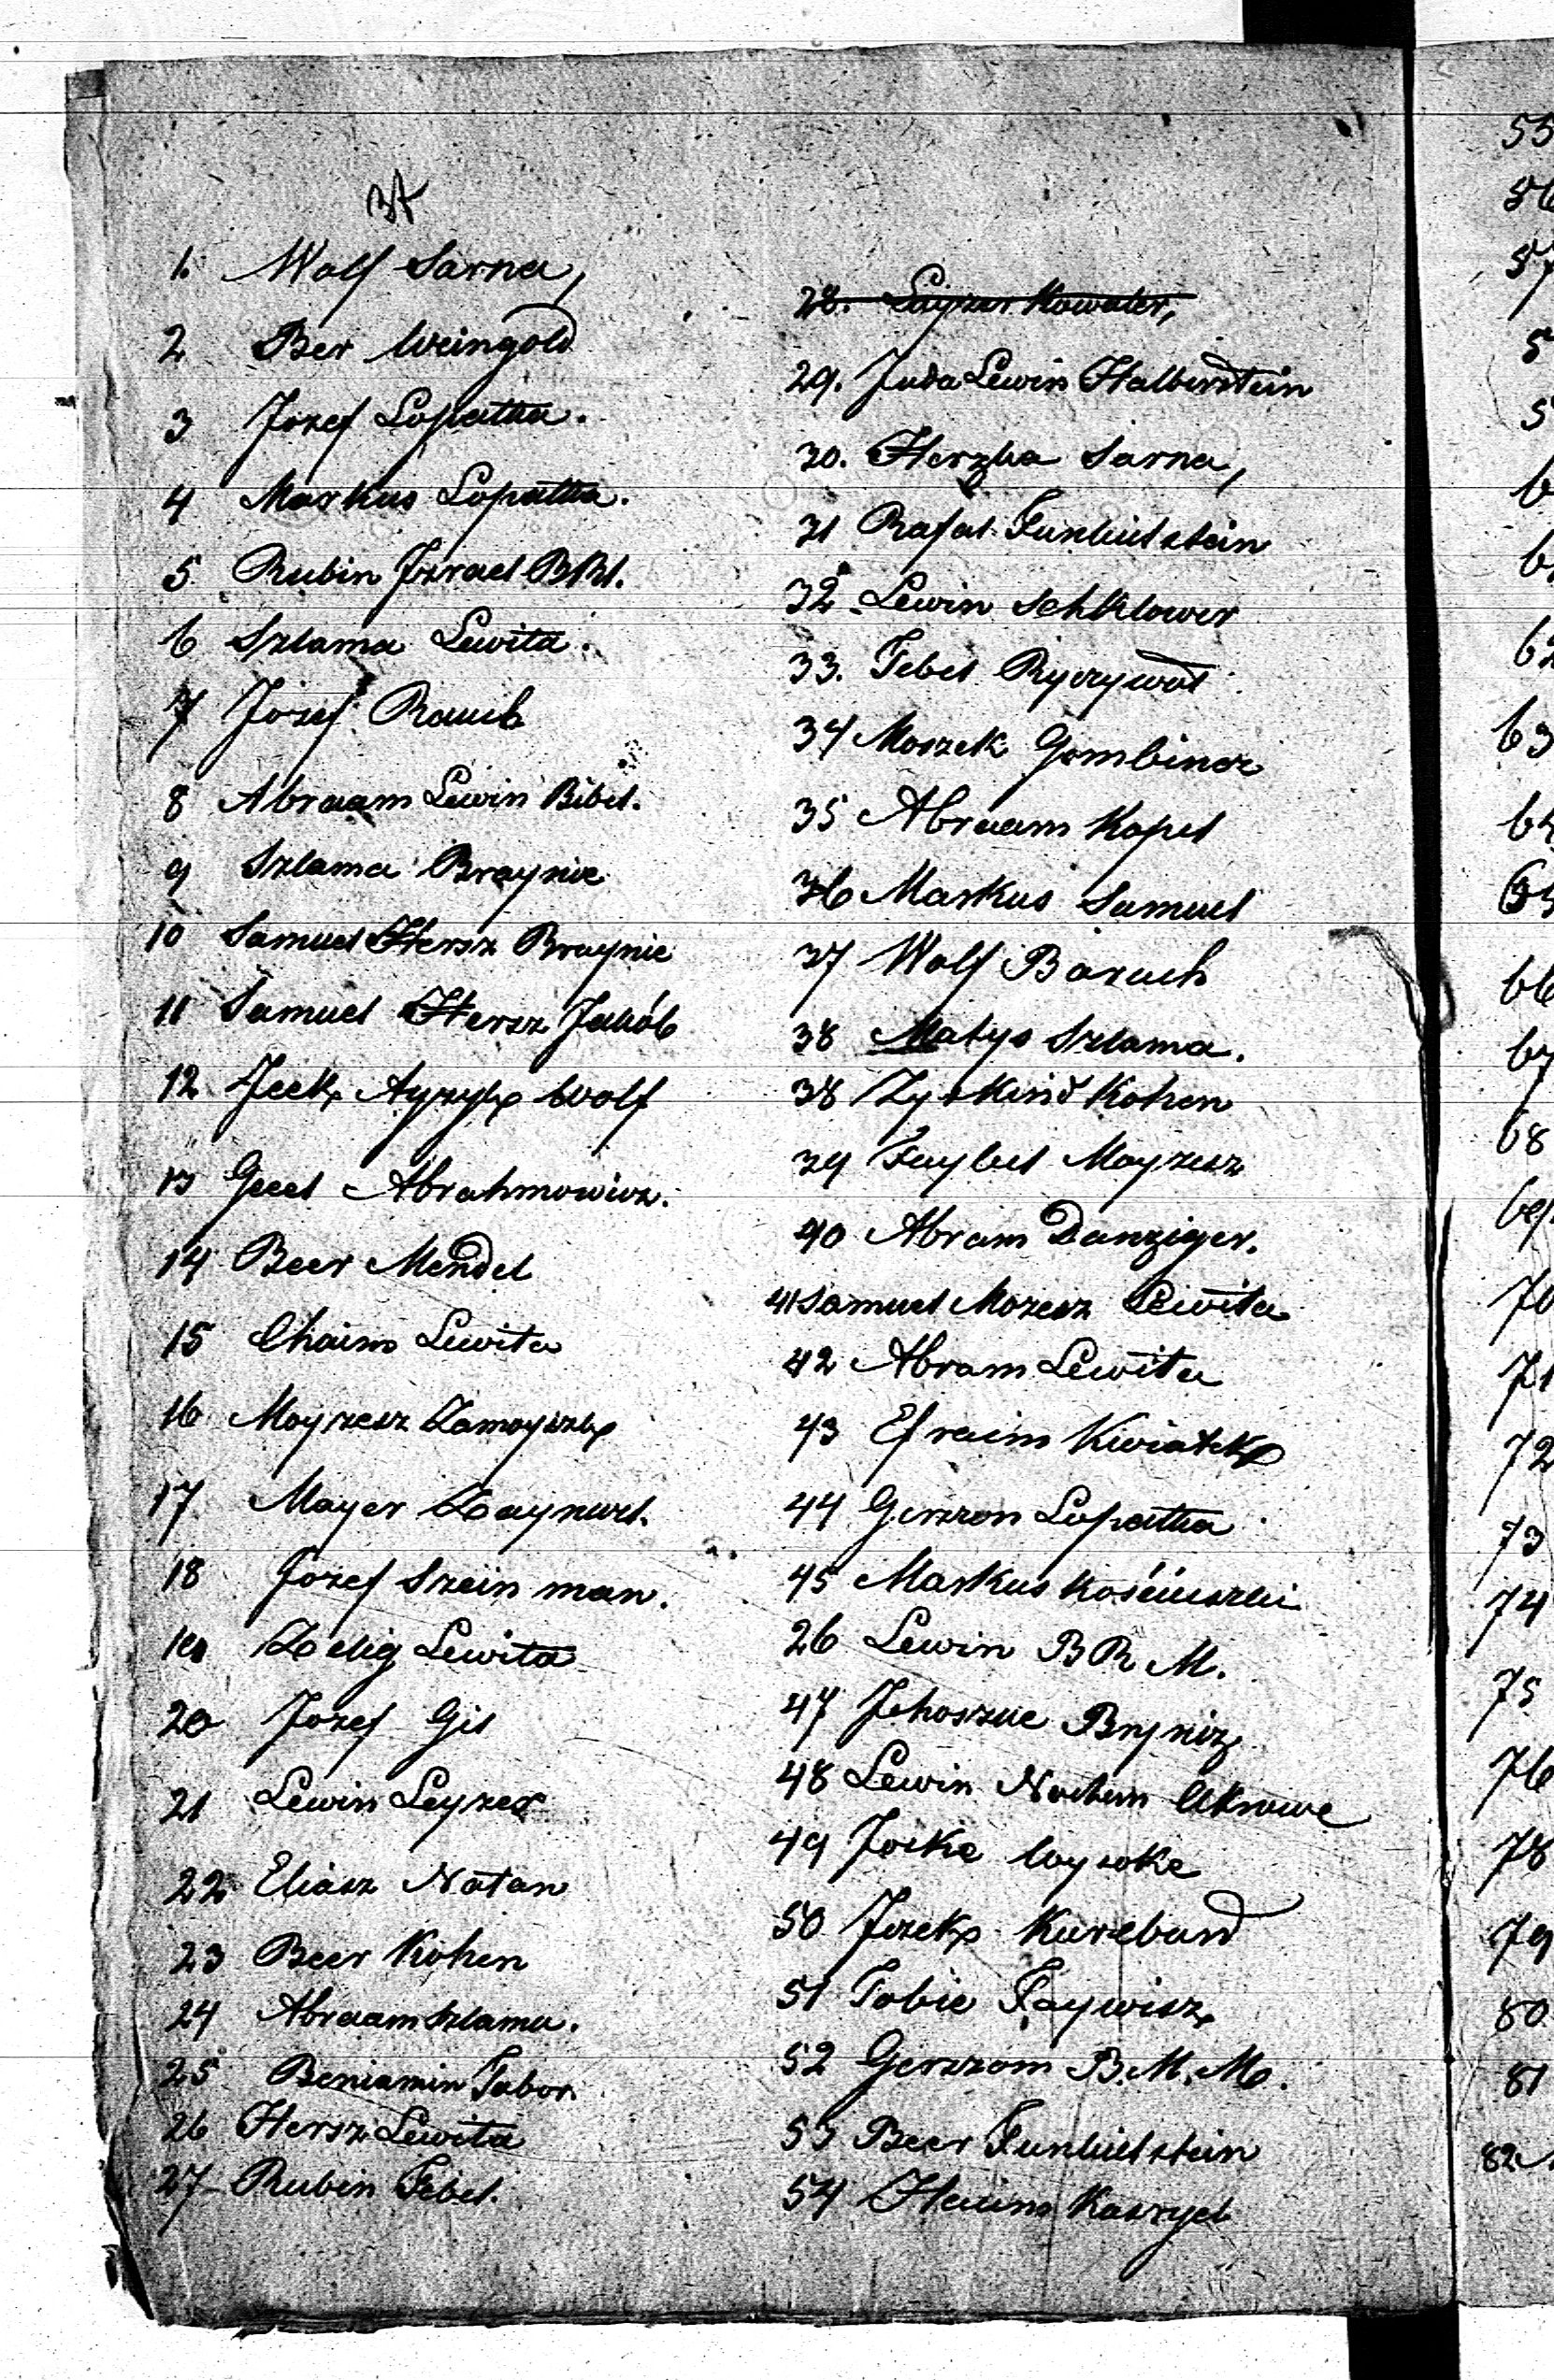 37
1. Wolf Sarna,
2 Ber Weingold
3 Jozef Lopatka.
4 Markus Lopatka.
5 Rubin Jzrael BRL.
6 Szlama Lewita.
7 Józef Rauch
8 Abraam Lewin Bibel.
9 Szlama Braynic
10 Samuel Hersz Braynic
11 Samuel Hersz Jakób
12 Wolf
13 Abrahmowicz.
14 Beer Mendel
15 Chaim Lewita
16 Moyzesz
17 Mayer
18 Jozef Szein man.
19 Zelig Lewita
20 Jozef Gis
21 Lewin Leyzer
22 Eliasz Natan
23 Beer Kohen
24 Abraam Szlama.
25 Beniamin Tabor.
26 Hersz Lewita
27 Rubin Febel.
28. Layzer Kowaler,
29. Juda Lewin Halberstein
30. Herzka Sarna,
31 Rafal Funkielstein
32 Lewin Schklower
33. Febel Ryczywol
34 Moszek Gombiner
35 Abraam Kopel
36 Markus Samuel
37 Wolf Baruch
38 Matys Szlama.
38 Zyskind Kohen
39 Faybel Moyzesz
40 Abram Danziger.
41 Samuel Mozesz Lewita
42 Abram Lewita
43 Efraim Kwiatek
44 Gerszon Lopatka
45 Markus Kościuszki
26 Lewin B R M.
47 Jehoszue
48 Lewin Nochum
49 Joske Wysoke
50 Jozek Kureband
51 Tobie Faywisz
52 Gerszom B. M. M.
53 Beer Funkielstein
54 Haims Kasryel
55
56
57
5
5
6
6
62
63
64
65
66
67
68
69.
70
71
72
73
74
75
76
78
79
80
81
82